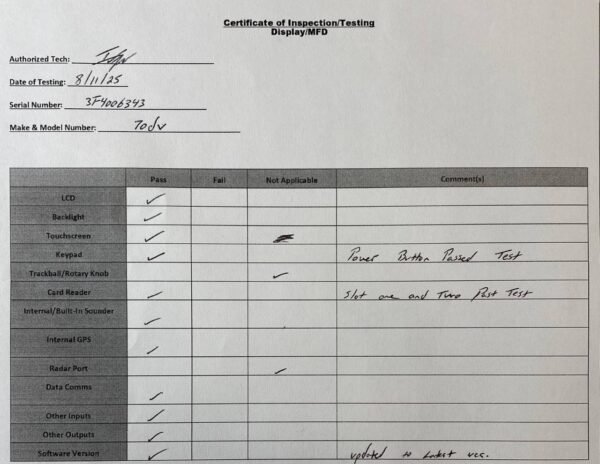 Certificate of Inspection/Testing
Display/MFD
Authorized Tech:
Date of Testing: 8/11/25
Serial Number: 3F4006343
Make & Model Number: 70dv
Pass Fail Not Applicable Comment(s)
LCD ✓
Backlight ✓
Touchscreen ✓
Keypad ✓ Power Button Passed Test
Trackball/Rotary Knob ✓
Card Reader ✓ Slot one and Two Past Test
Internal/Built-In Sounder ✓
Internal GPS ✓
Radar Port ✓
Data Comms ✓
Other Inputs ✓
Other Outputs ✓
Software Version ✓ updated to Latest